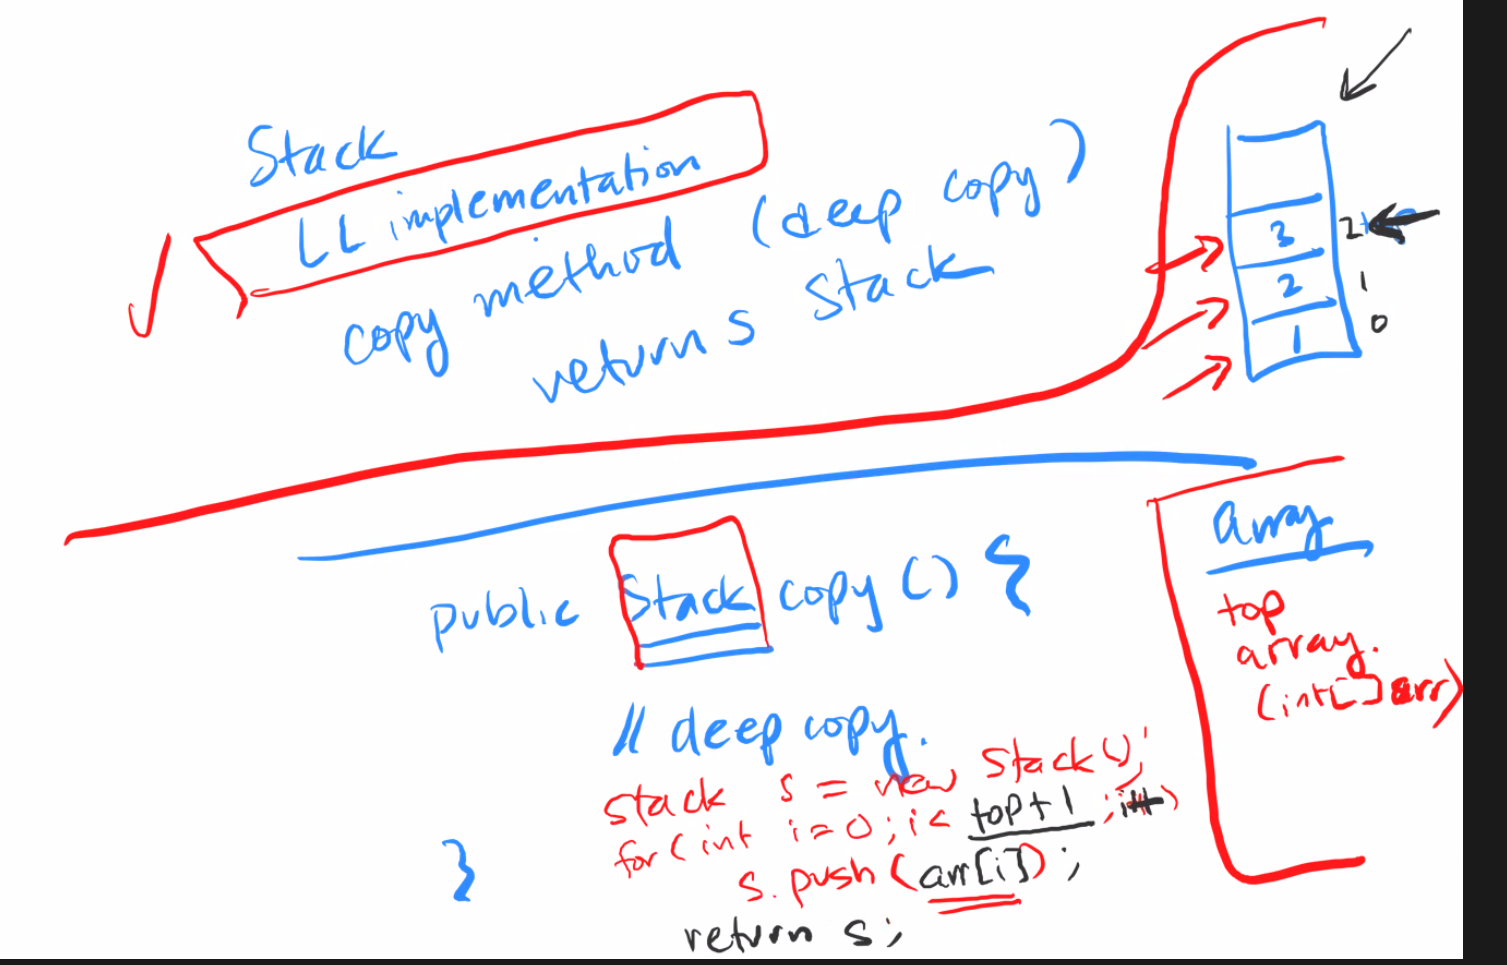 Stack
LL implementation
copy method (deep copy)
returns Stack
3
2
1
2
1
0
public Stack copy() {
// deep copy.
stack s = new Stack();
for(int i=0; i< top+1 ; i++)
s.push(arr[i]);
return s;
}
array
top
array.
(int[] arr)